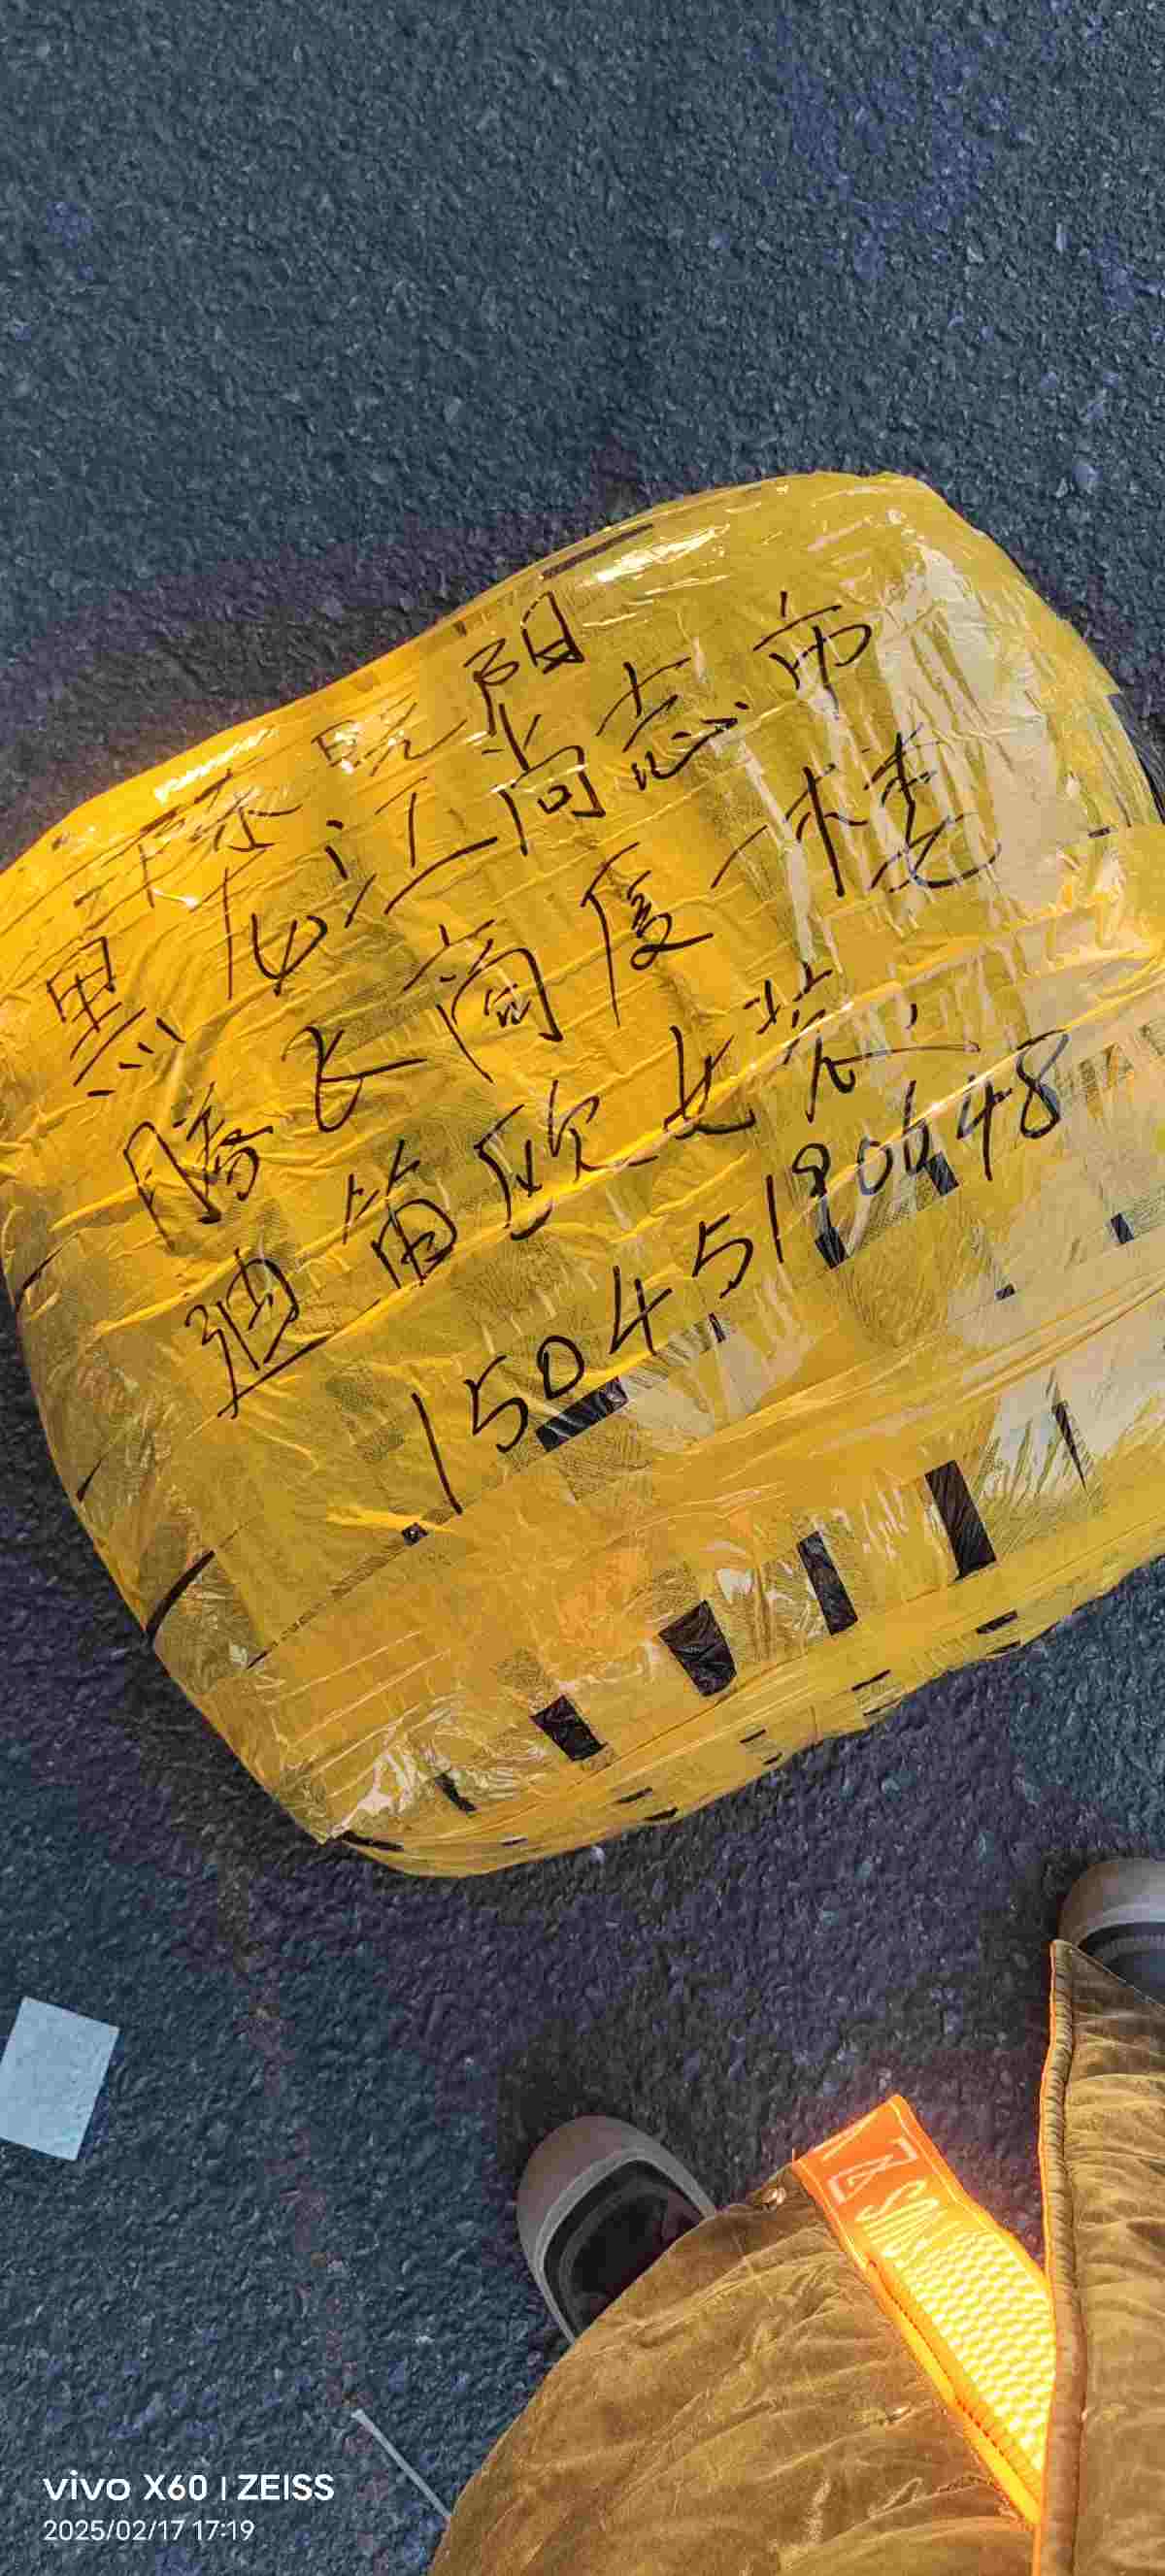 晓阳
黑龙江尚志市
腾飞商厦一楼
迪笛欧女装
15045180648
vivo X60 | ZEISS
2025/02/17 17:19